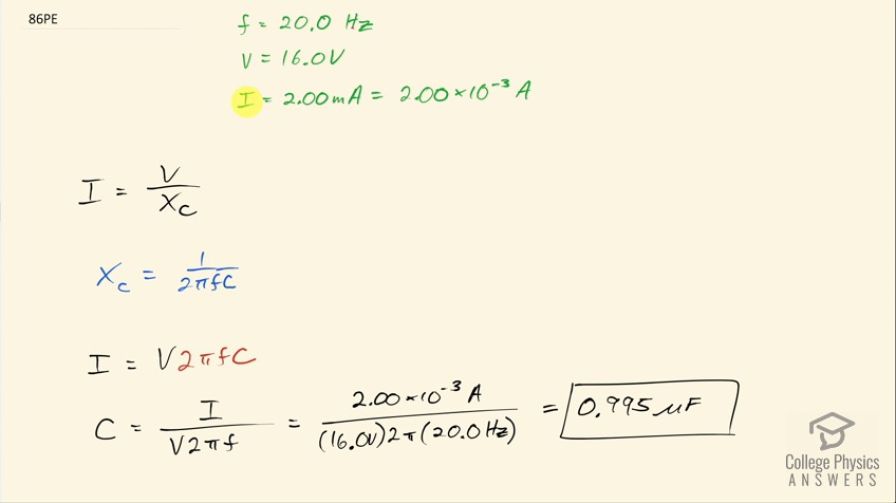 86PE
f = 20.0 Hz
V = 16.0V
I = 2.00mA = 2.00×10⁻³ A
I = V/X_C
X_C = 1/2πfC
I = V2πfC
C = I/V2πf = 2.00×10⁻³ A/(16.0V)2π(20.0Hz) = 0.995μF
College Physics
ANSWERS